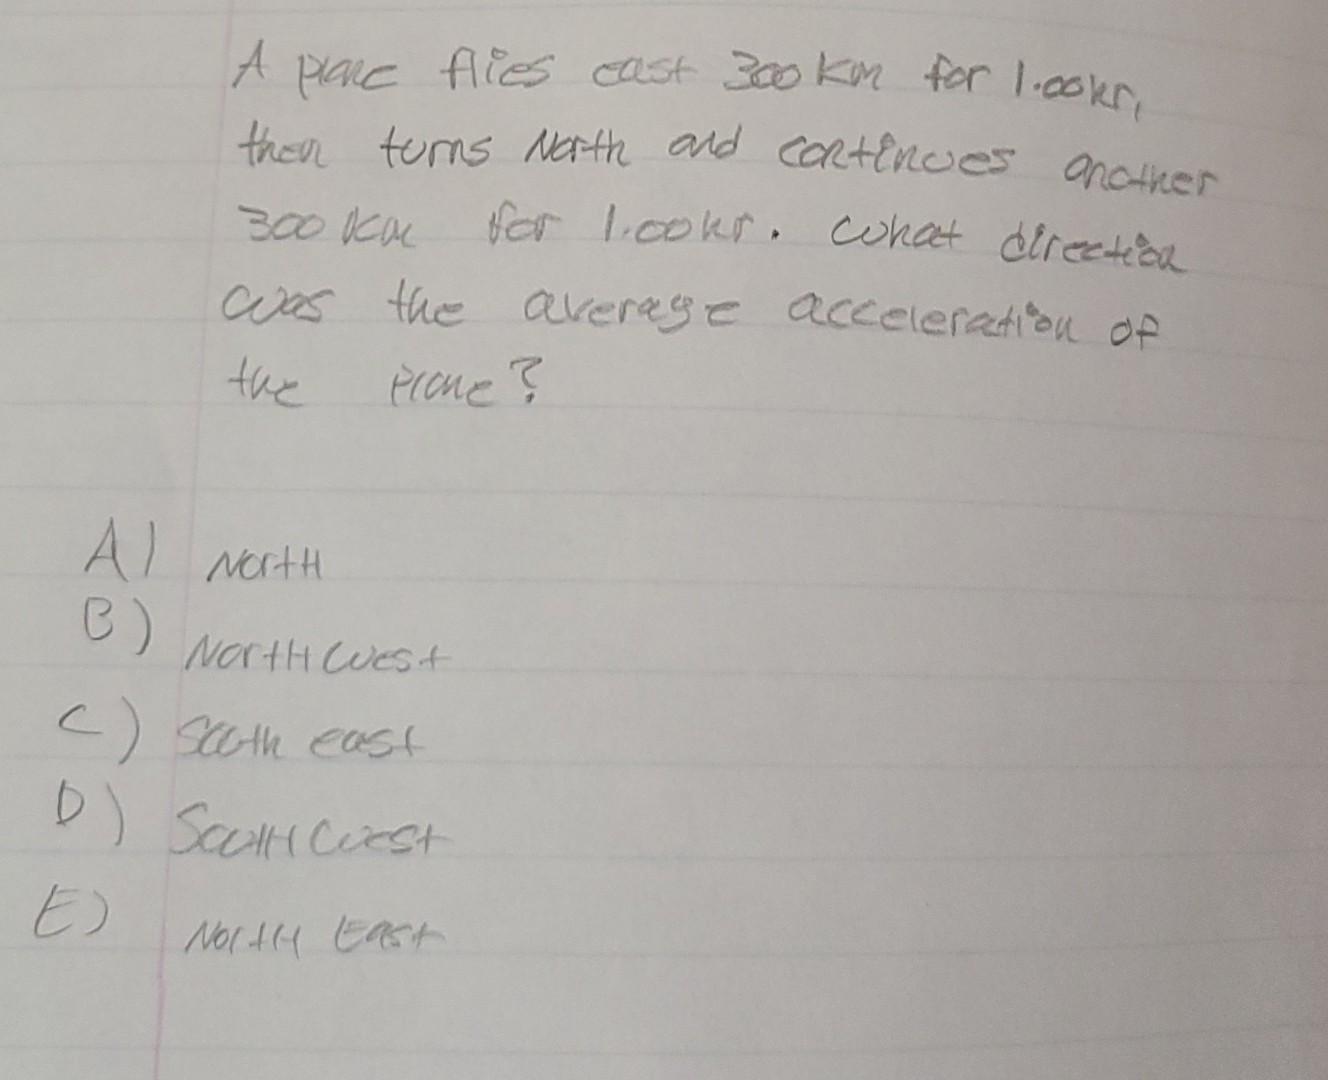 A plane flies east 300 km for 1.00hr,
then turns North and continues another
300 km for 1.00hr. What direction
was the average acceleration of
the plane?
A) North
B) North west
C) South east
D) South west
E) North East